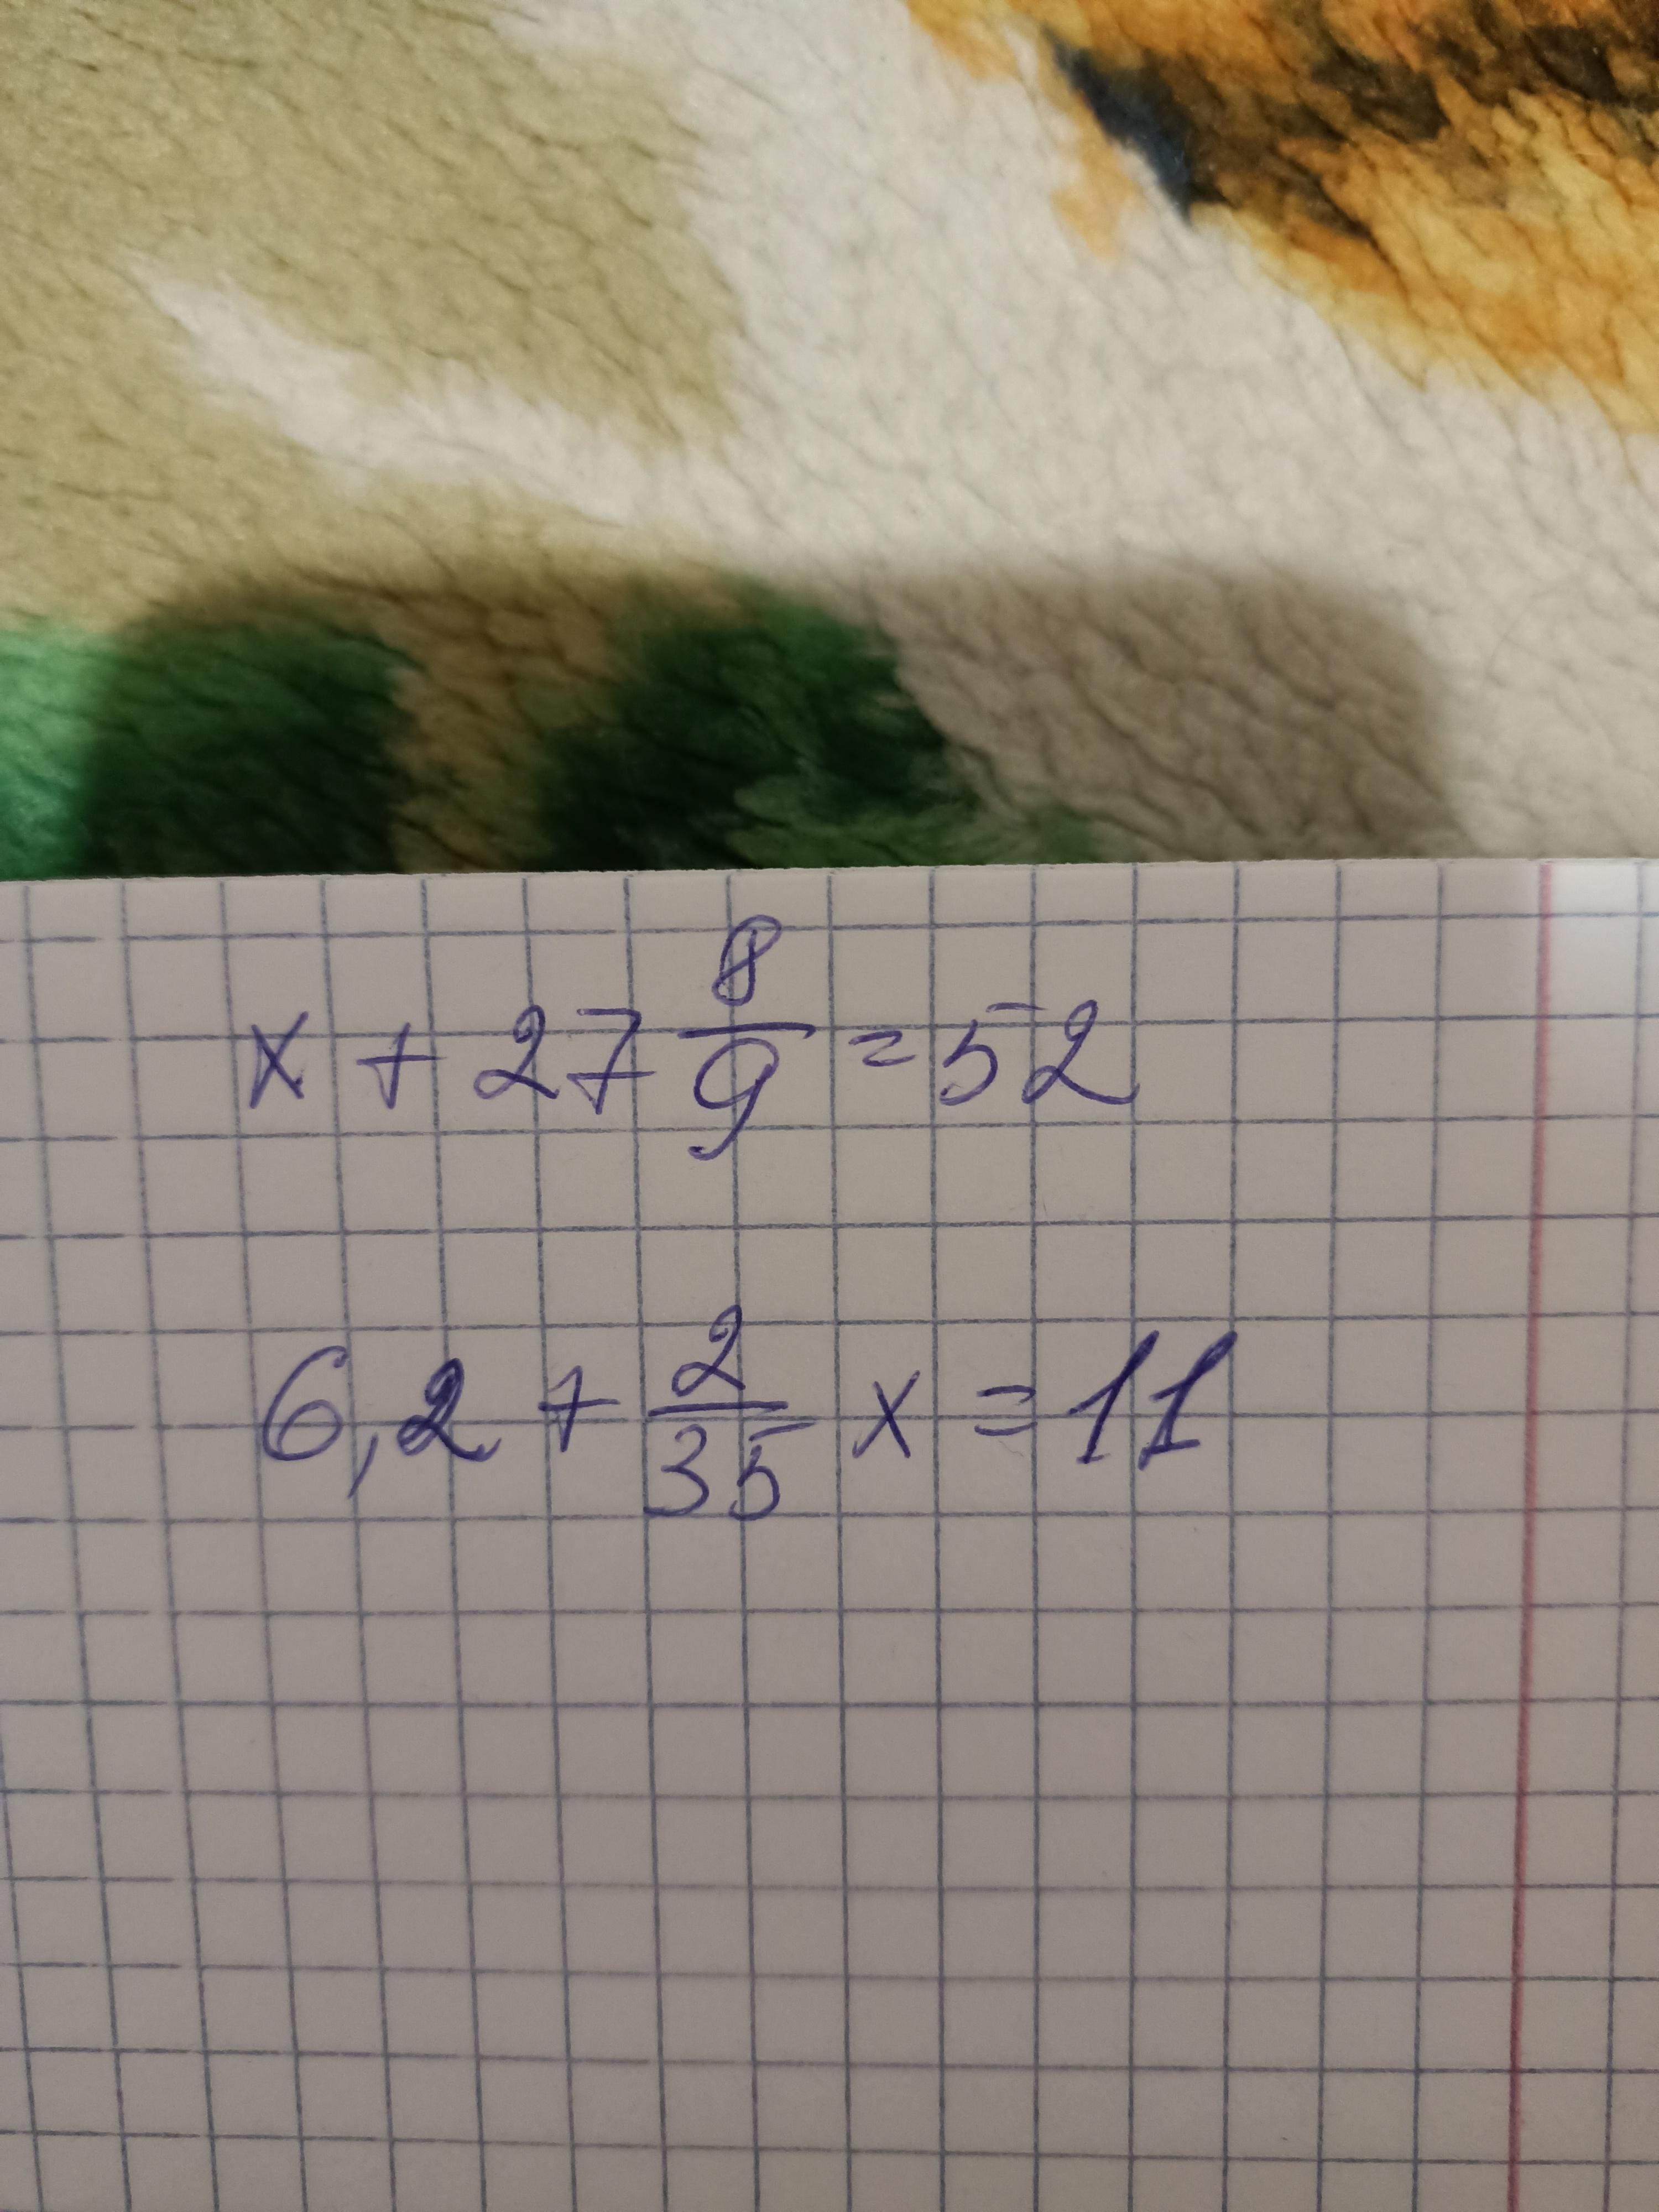 x + 27 8/9 = 52
6,2 + 2/35 x = 11